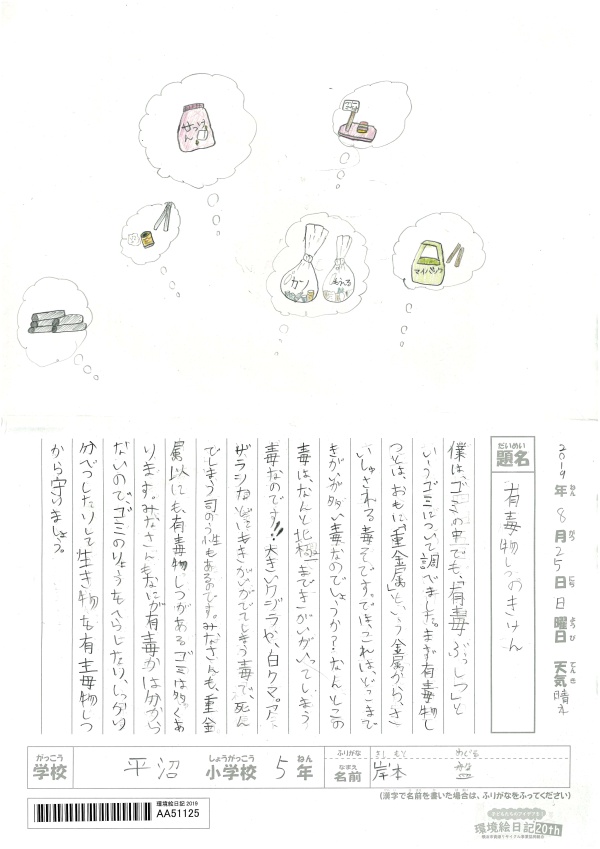 せっけん
カン
もえる
マイバック
2019年8月25日日曜日 天気晴れ
ねん
がつ
にち
ようび
てんき
だいめい
題名
有毒物しつのきけん
僕は、ゴミの中でも、「有毒ぶっしつ」と
いうゴミについて調べました。まず有毒物し
つとは、おもに「重金属」という金属から、さ
いしゅされる毒そです。では、これは、どこまで
きがいが多い毒なのでしょうか？なんとこの
毒は、なんと北極まできがいがいってしまう
毒なのです!!大きいクジラや、白クマ。ア
ザラシなどにもきがいがでてしまう毒で、死ん
でしまう可のう性もあるのです。みなさんも、重金
属以にも、有毒物しつがあるゴミは多くあ
ります。みなさんもなにが有毒かは分から
ないので、ゴミのりょうをへらしたり、しっかり
分べつしたりして生き物を有毒物しつ
から守りましょう。
がっこう
学校
平沼
しょうがっこう
小学校
5年
ねん
ふりがな
きしもと
なまえ
名前
岸本
(漢字で名前を書いた場合は、ふりがなをふってください)
環境絵日記 2019
AA51125
環境絵日記20th